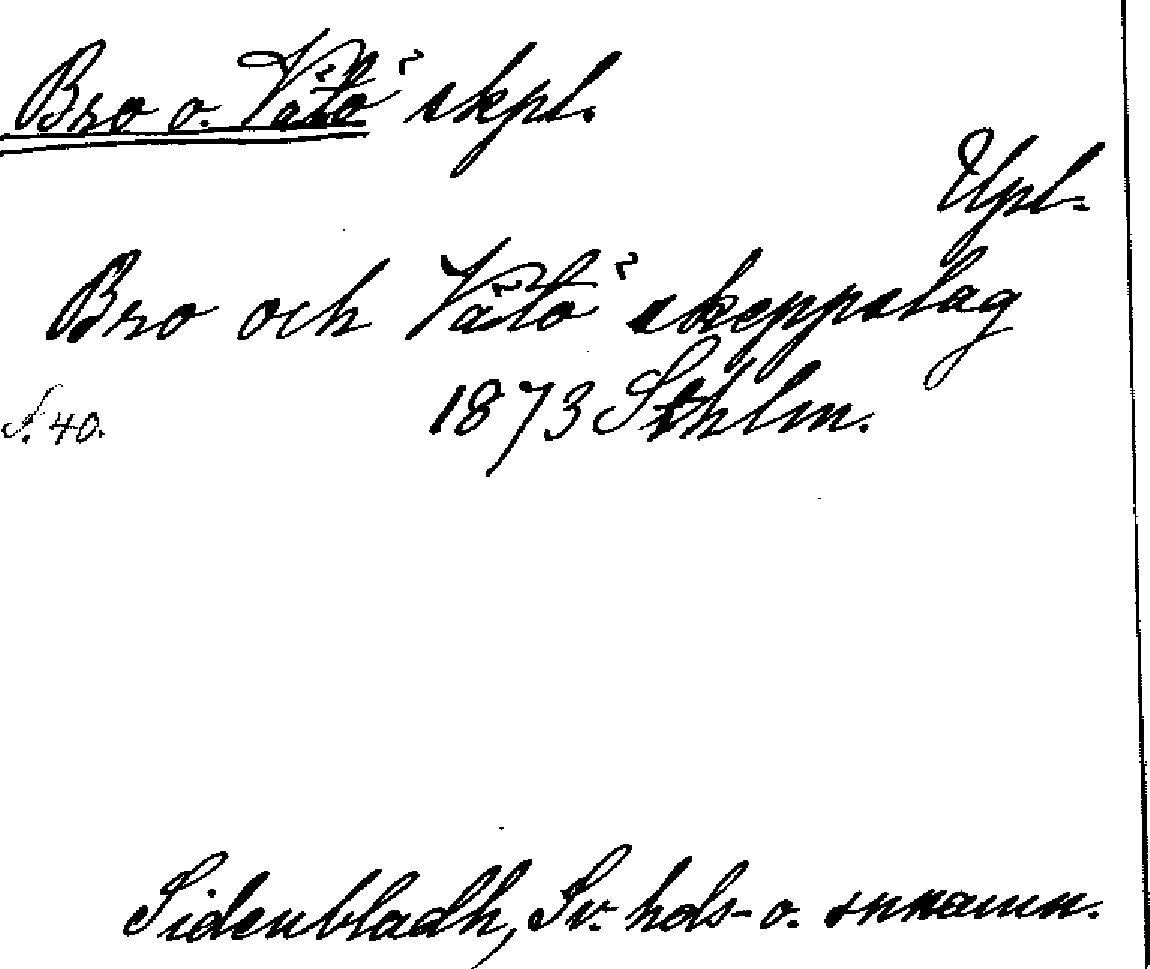 Bro o. Vätö skpl.
Upl.
Bro och Vätö skeppslag
S. 40. 1873 Sthlm.
Sidenbladh, Sv. hds- o. snnamn.